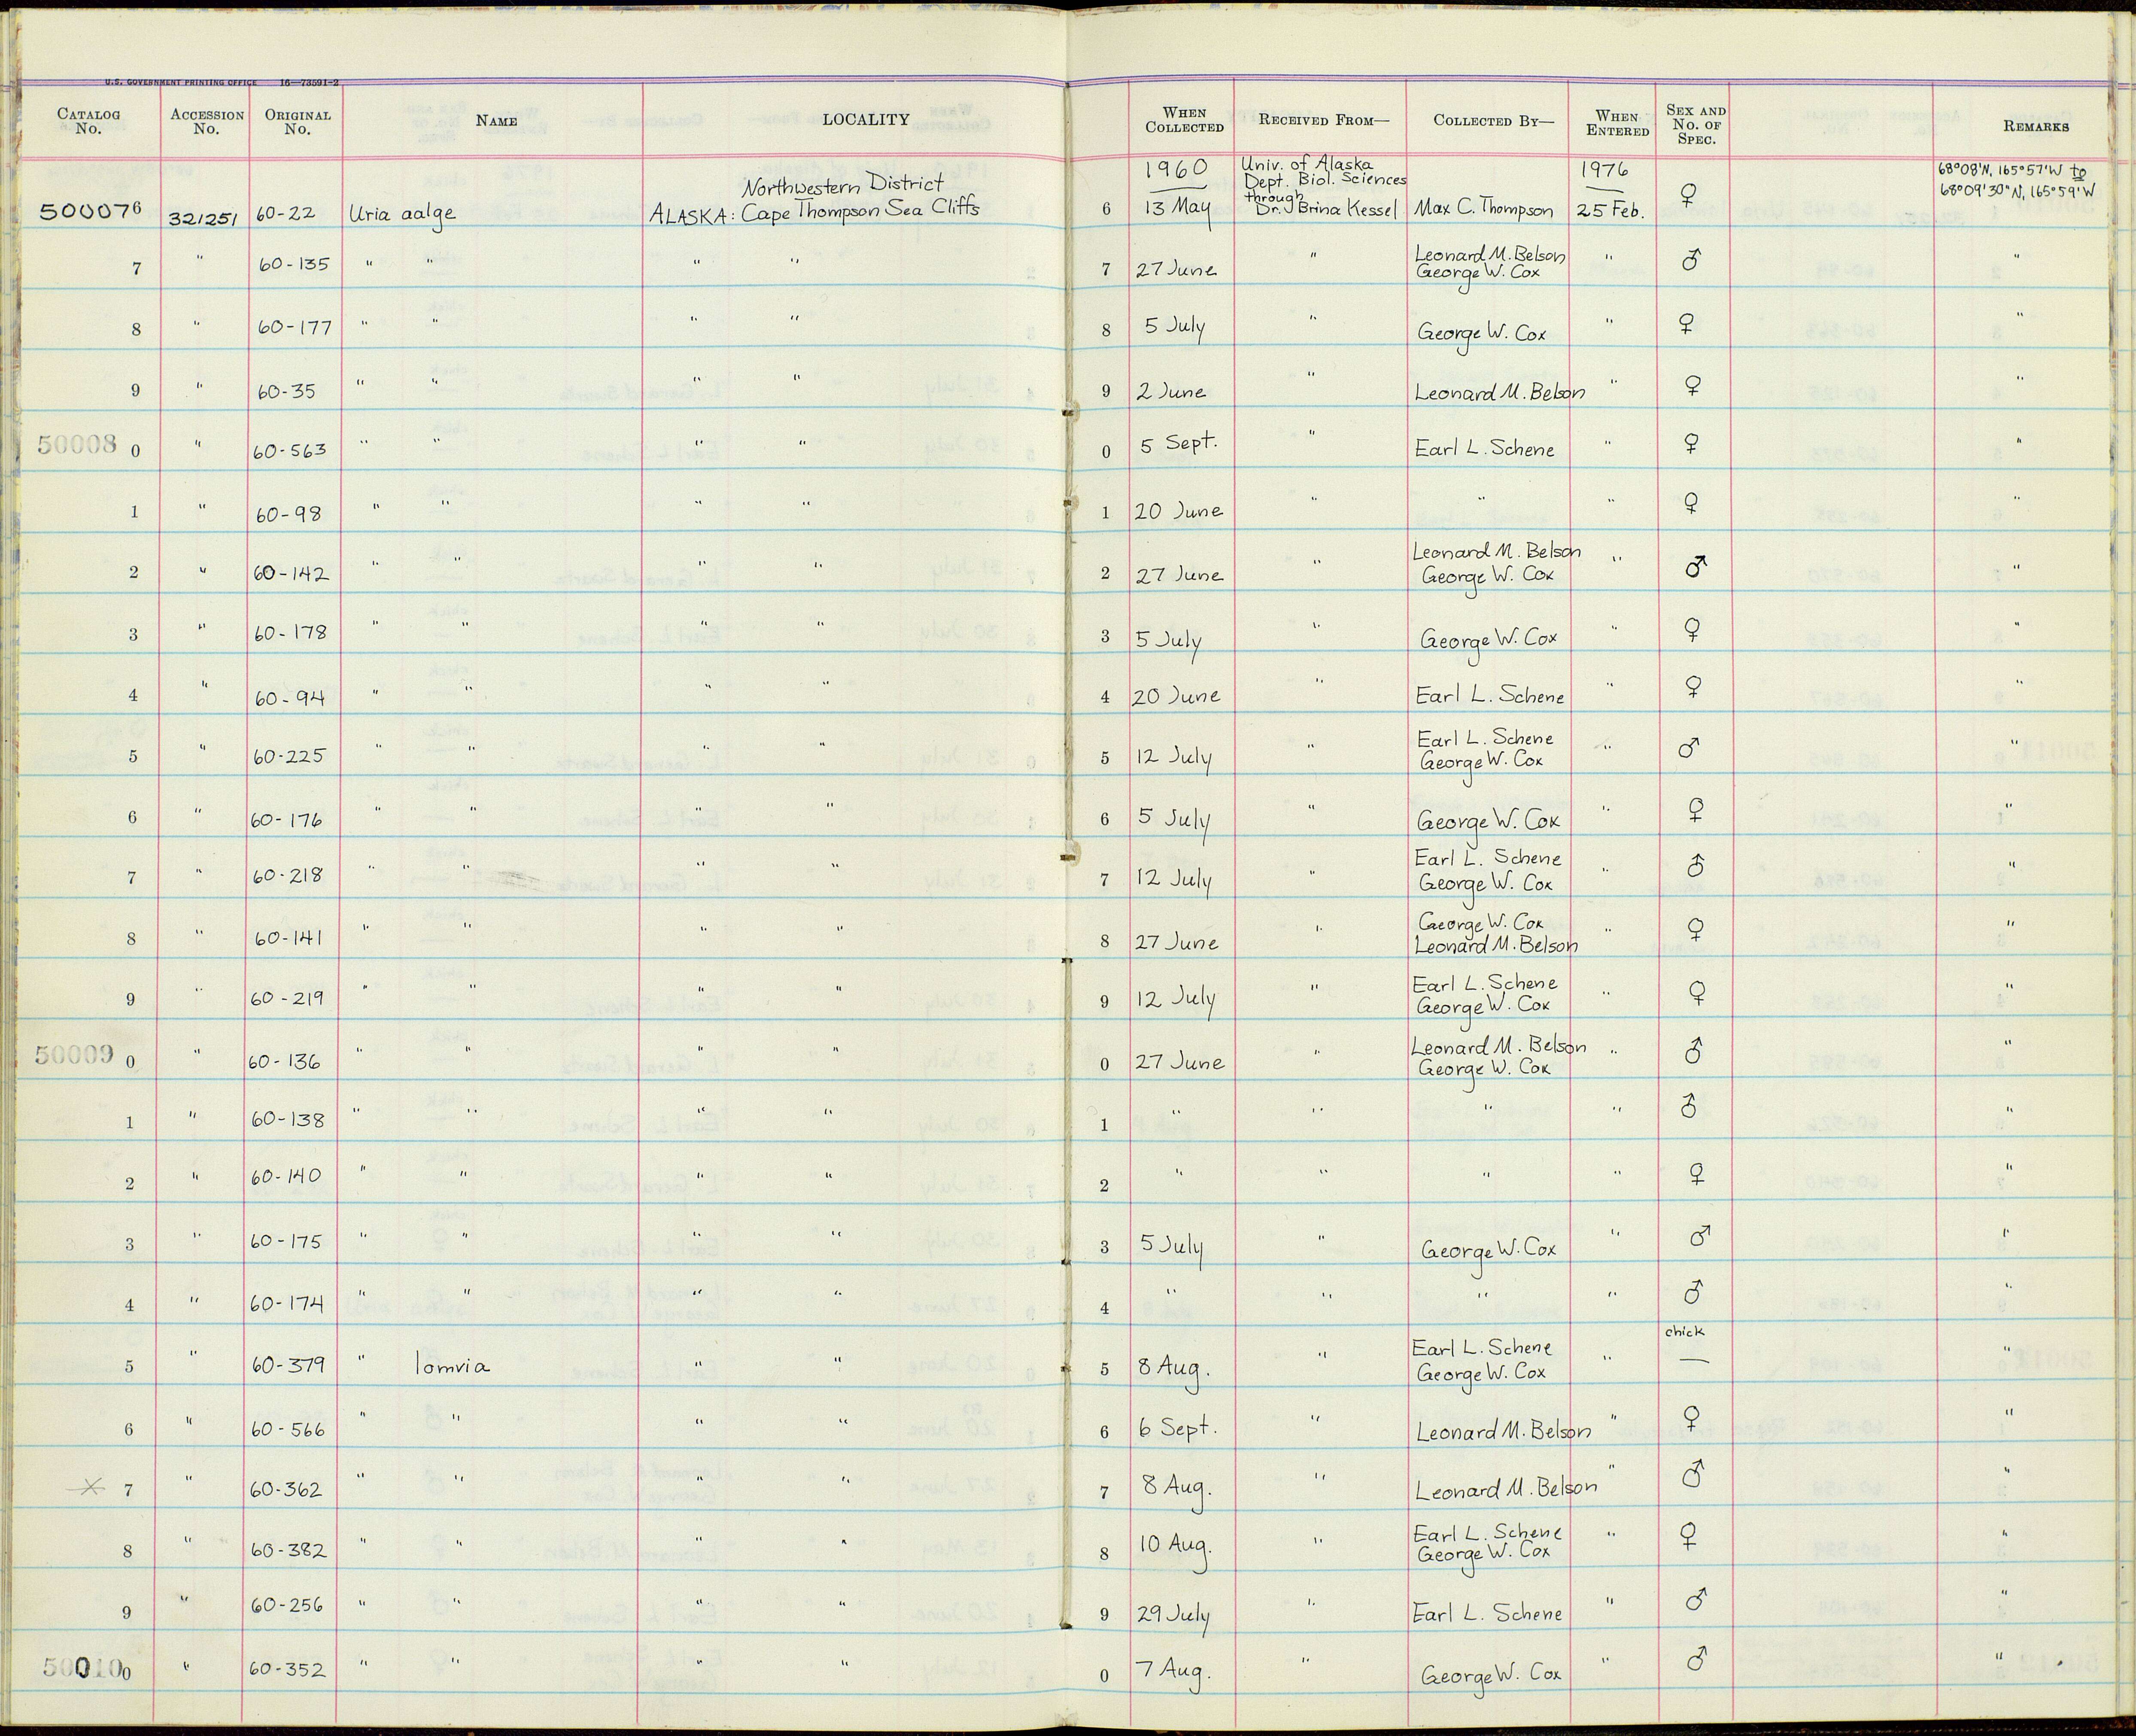 U.S. GOVERNMENT PRINTING OFFICE 16—73591-2
CATALOG No. ACCESSION No. ORIGINAL No. NAME LOCALITY WHEN COLLECTED RECEIVED FROM— COLLECTED BY— WHEN ENTERED SEX AND No. OF SPEC. REMARKS
1960 Univ. of Alaska 1976 68°08'N, 165°57'W to
Northwestern District Dept. Biol. Sciences 68°09'30"N, 165°59'W
through
500076 321251 60-22 Uria aalge ALASKA: Cape Thompson Sea Cliffs 6 13 May Dr. Brina Kessel Max C. Thompson 25 Feb. ♀
Leonard M. Belson
7 " 60-135 " " " " 7 27 June " George W. Cox " ♂ "
8 " 60-177 " " " " 8 5 July " George W. Cox " ♀ "
9 " 60-35 " " " " 9 2 June " Leonard M. Belson " ♀ "
50008 0 " 60-563 " " " " 0 5 Sept. " Earl L. Schene " ♀ "
1 " 60-98 " " " " 1 20 June " " " ♀ "
Leonard M. Belson
2 " 60-142 " " " " 2 27 June " George W. Cox " ♂ "
3 " 60-178 " " " " 3 5 July " George W. Cox " ♀ "
4 " 60-94 " " " " 4 20 June " Earl L. Schene " ♀ "
Earl L. Schene
5 " 60-225 " " " " 5 12 July " George W. Cox " ♂ "
6 " 60-176 " " " " 6 5 July " George W. Cox " ♀ "
Earl L. Schene
7 " 60-218 " " " " 7 12 July " George W. Cox " ♂ "
George W. Cox
8 " 60-141 " " " " 8 27 June " Leonard M. Belson " ♀ "
Earl L. Schene
9 " 60-219 " " " " 9 12 July " George W. Cox " ♀ "
Leonard M. Belson
50009 0 " 60-136 " " " " 0 27 June " George W. Cox " ♂ "
1 " 60-138 " " " " 1 " " " " ♂ "
2 " 60-140 " " " " 2 " " " " ♀ "
3 " 60-175 " " " " 3 5 July " George W. Cox " ♂ "
4 " 60-174 " " " " 4 " " " " ♂ "
chick
Earl L. Schene
5 " 60-379 " lomvia " " 5 8 Aug. " George W. Cox " — "
6 " 60-566 " " " " 6 6 Sept. " Leonard M. Belson " ♀ "
X 7 " 60-362 " " " " 7 8 Aug. " Leonard M. Belson " ♂ "
Earl L. Schene
8 " 60-382 " " " " 8 10 Aug. " George W. Cox " ♀ "
9 " 60-256 " " " " 9 29 July " Earl L. Schene " ♂ "
500100 " 60-352 " " " " 0 7 Aug. " George W. Cox " ♂ "